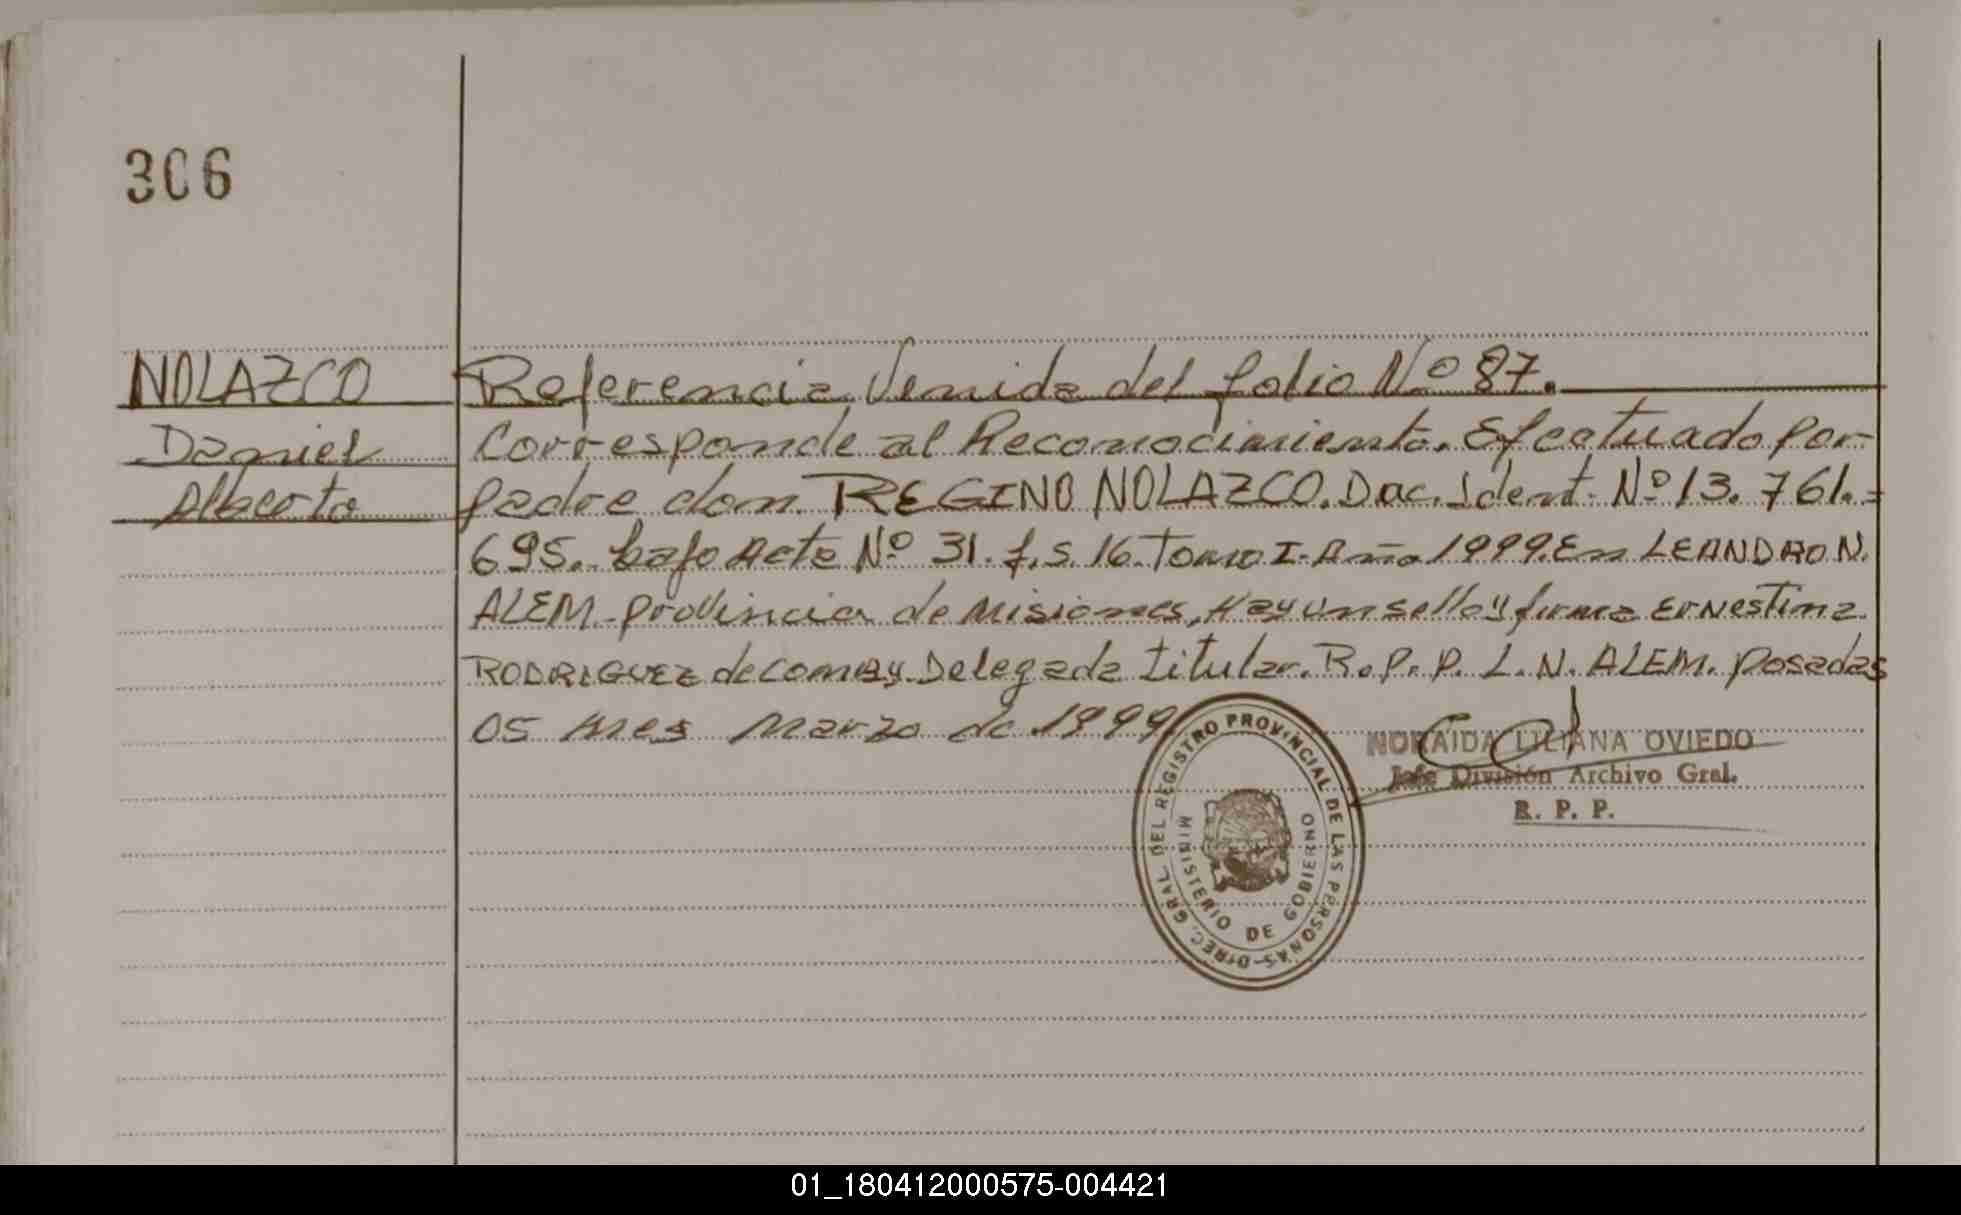 306
NOLAZCO
Daniel
Alberto
Referencia Venida del folio Nº 87.
Corresponde al Reconocimiento. Efectuado por
padre don REGINO NOLAZCO. Doc. Ident. Nº 13. 761.=
695. bajo Acta Nº 31. f.s. 16. Tomo I. Año 1999. En LEANDRO N.
ALEM. provincia de Misiones, Hay un sello y firma Ernestina
RODRIGUEZ de Delegada titular. R.P.P. L. N. ALEM. Posadas
05 mes Marzo de 1999
DIREC. GRAL. DEL REGISTRO PROVINCIAL DE LAS PERSONAS
MINISTERIO DE GOBIERNO
NORAIDA LILIANA OVIEDO
Jefe División Archivo Gral.
R. P. P.
01_180412000575-004421